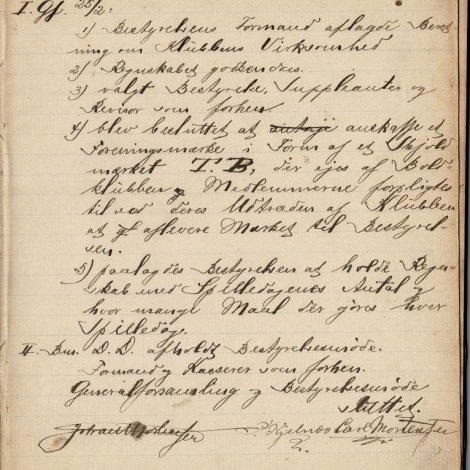 I. Gf. 25/2:
1) Bestyrelsens Formand aflagde Beret-
ning om Klubbens Virksomhed
2) Regnskabet godkendes.
3) valgt Bestyrelse, Suppleanter og
Revisor som forhen.
4) blev besluttet at antage anskaffe et
Foreningsmærke i Form af et Skjold
mærket T.B, der ejes af Bold-
klubben og Medlemmerne forpligtes
til ved deres Udtræden af Klubben
at aflevere Mærket til Bestyrel-
sen.
5) paalagdes Bestyrelsen at holde Regn-
skab med Spilledagenes Antal og
hvor mange Maal der gjøres hver
Spilledag.
II. D.D. afholdt Bestyrelsesmøde.
Formand og Kasserer som forhen.
Generalforsamling og Bestyrelsesmøde
sluttet.
Carl Mortensen